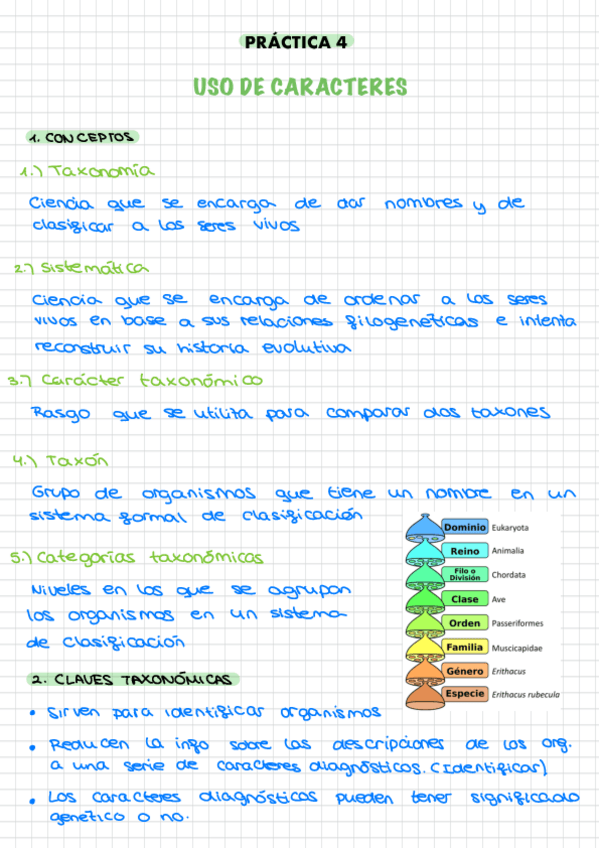 PRÁCTICA 4
USO DE CARACTERES
1. CONCEPTOS
1.) Taxonomía
Ciencia que se encarga de dar nombres y de
clasificar a los seres vivos
2.) Sistemática
Ciencia que se encarga de ordenar a los seres
vivos en base a sus relaciones filogenéticas e intenta
reconstruir su historia evolutiva
3.) Carácter taxonómico
Rasgo que se utiliza para comparar dos taxones
4.) Taxón
Grupo de organismos que tiene un nombre en un
sistema formal de clasificación
5.) Categorías taxonómicas
Niveles en los que se agrupan
los organismos en un sistema
de clasificación
Dominio Eukaryota
Reino Animalia
Filo o División Chordata
Clase Ave
Orden Passeriformes
Familia Muscicapidae
Género Erithacus
Especie Erithacus rubecula
2. CLAVES TAXONÓMICAS
• Sirven para identificar organismos
• Reducen la info sobre las descripciones de los org.
a una serie de caracteres diagnósticos. (Identificar)
• Los caracteres diagnósticos pueden tener significado
genético o no.